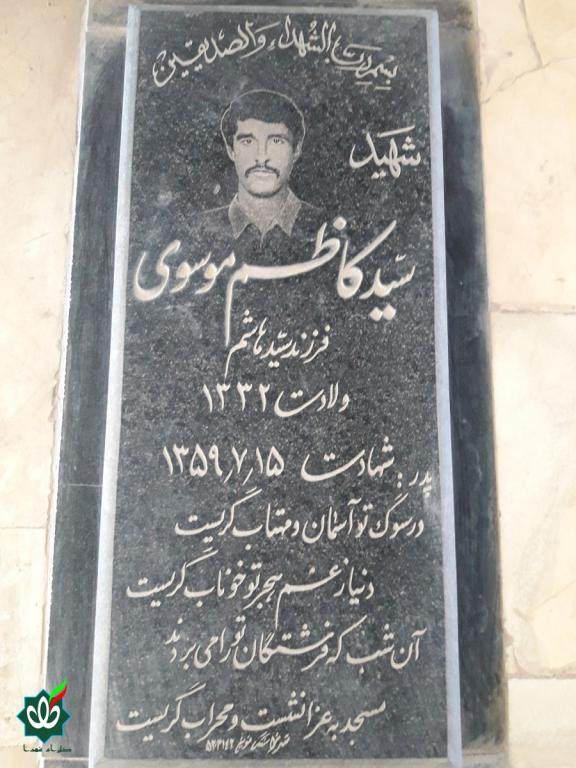 بسم رب الشهداء والصدیقین
شهید
سید کاظم موسوی
فرزند سید هاشم
ولادت ۱۳۳۲
شهادت ۱۳۵۹٫۷٫۱۵
پدر:
در سوگ تو آسمان و مهتاب گریست
دنیا ز غم هجر تو خوناب گریست
آن شب که فرشتگان تو را می بردند
مسجد به عزا نشست و محراب گریست